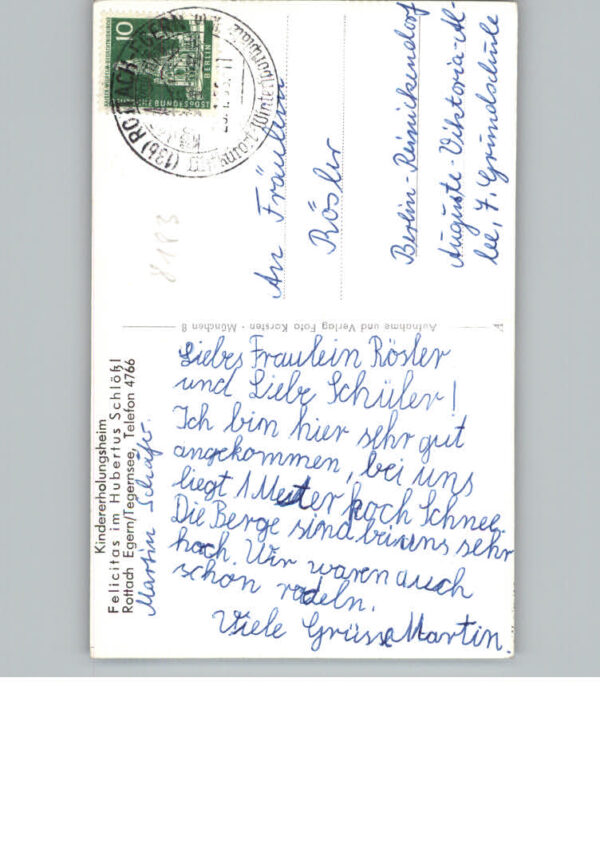 10
DEUTSCHE BUNDESPOST
BERLIN
(13b) ROTTACH-EGERN
An Fräulein
Rösler
Berlin-Reinickendorf
Auguste-Viktoria-Al-
lee, 7. Grundschule
8183
Aufnahme und Verlag Foto Karsten · München 8
Kindererholungsheim
Felicitas im Hubertus Schlößl
Rottach Egern/Tegernsee, Telefon 4766
Martin Schäfer.
Liebes Fraulein Rösler
und Liebe Schüler!
Ich bin hier sehr gut
angekommen, bei uns
liegt 1 Meter hoch Schnee.
Die Berge sind bei uns sehr
hoch. Wir waren auch
schon rodeln.
Viele Grüsse Martin.